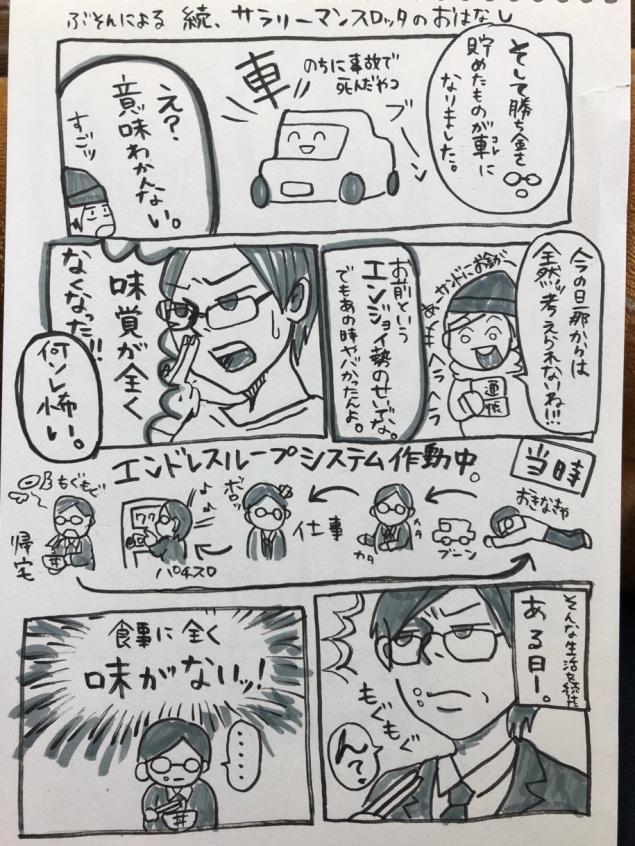 ぶそんによる 続、サラリーマンスロッタのおはなし
そして勝ち金を
貯めたものが車に
コレ
なりました。
のちに事故で
死んだやつ
車
ブーン
え?
意味わかんない。
すごッ
今の旦那からは
全然ッ考えられないね!!!
あーサンドにお金が〜
ヘラヘラ
通帳
お前という
エンジョイ勢のせいでな。
でもあの時ヤバかったんよ。
味覚が全く
なくなった!!
何ソレ怖い。
エンドレスループシステム作動中。
当時
おきなきゃ
ブーン
カタ
カタ
仕事
ボロッ
パチスロ
ワク
もぐもぐ
帰宅
そんな生活を続け
ある日ー。
もぐもぐ
ん?
食事に全く
味がないッ!
‥‥